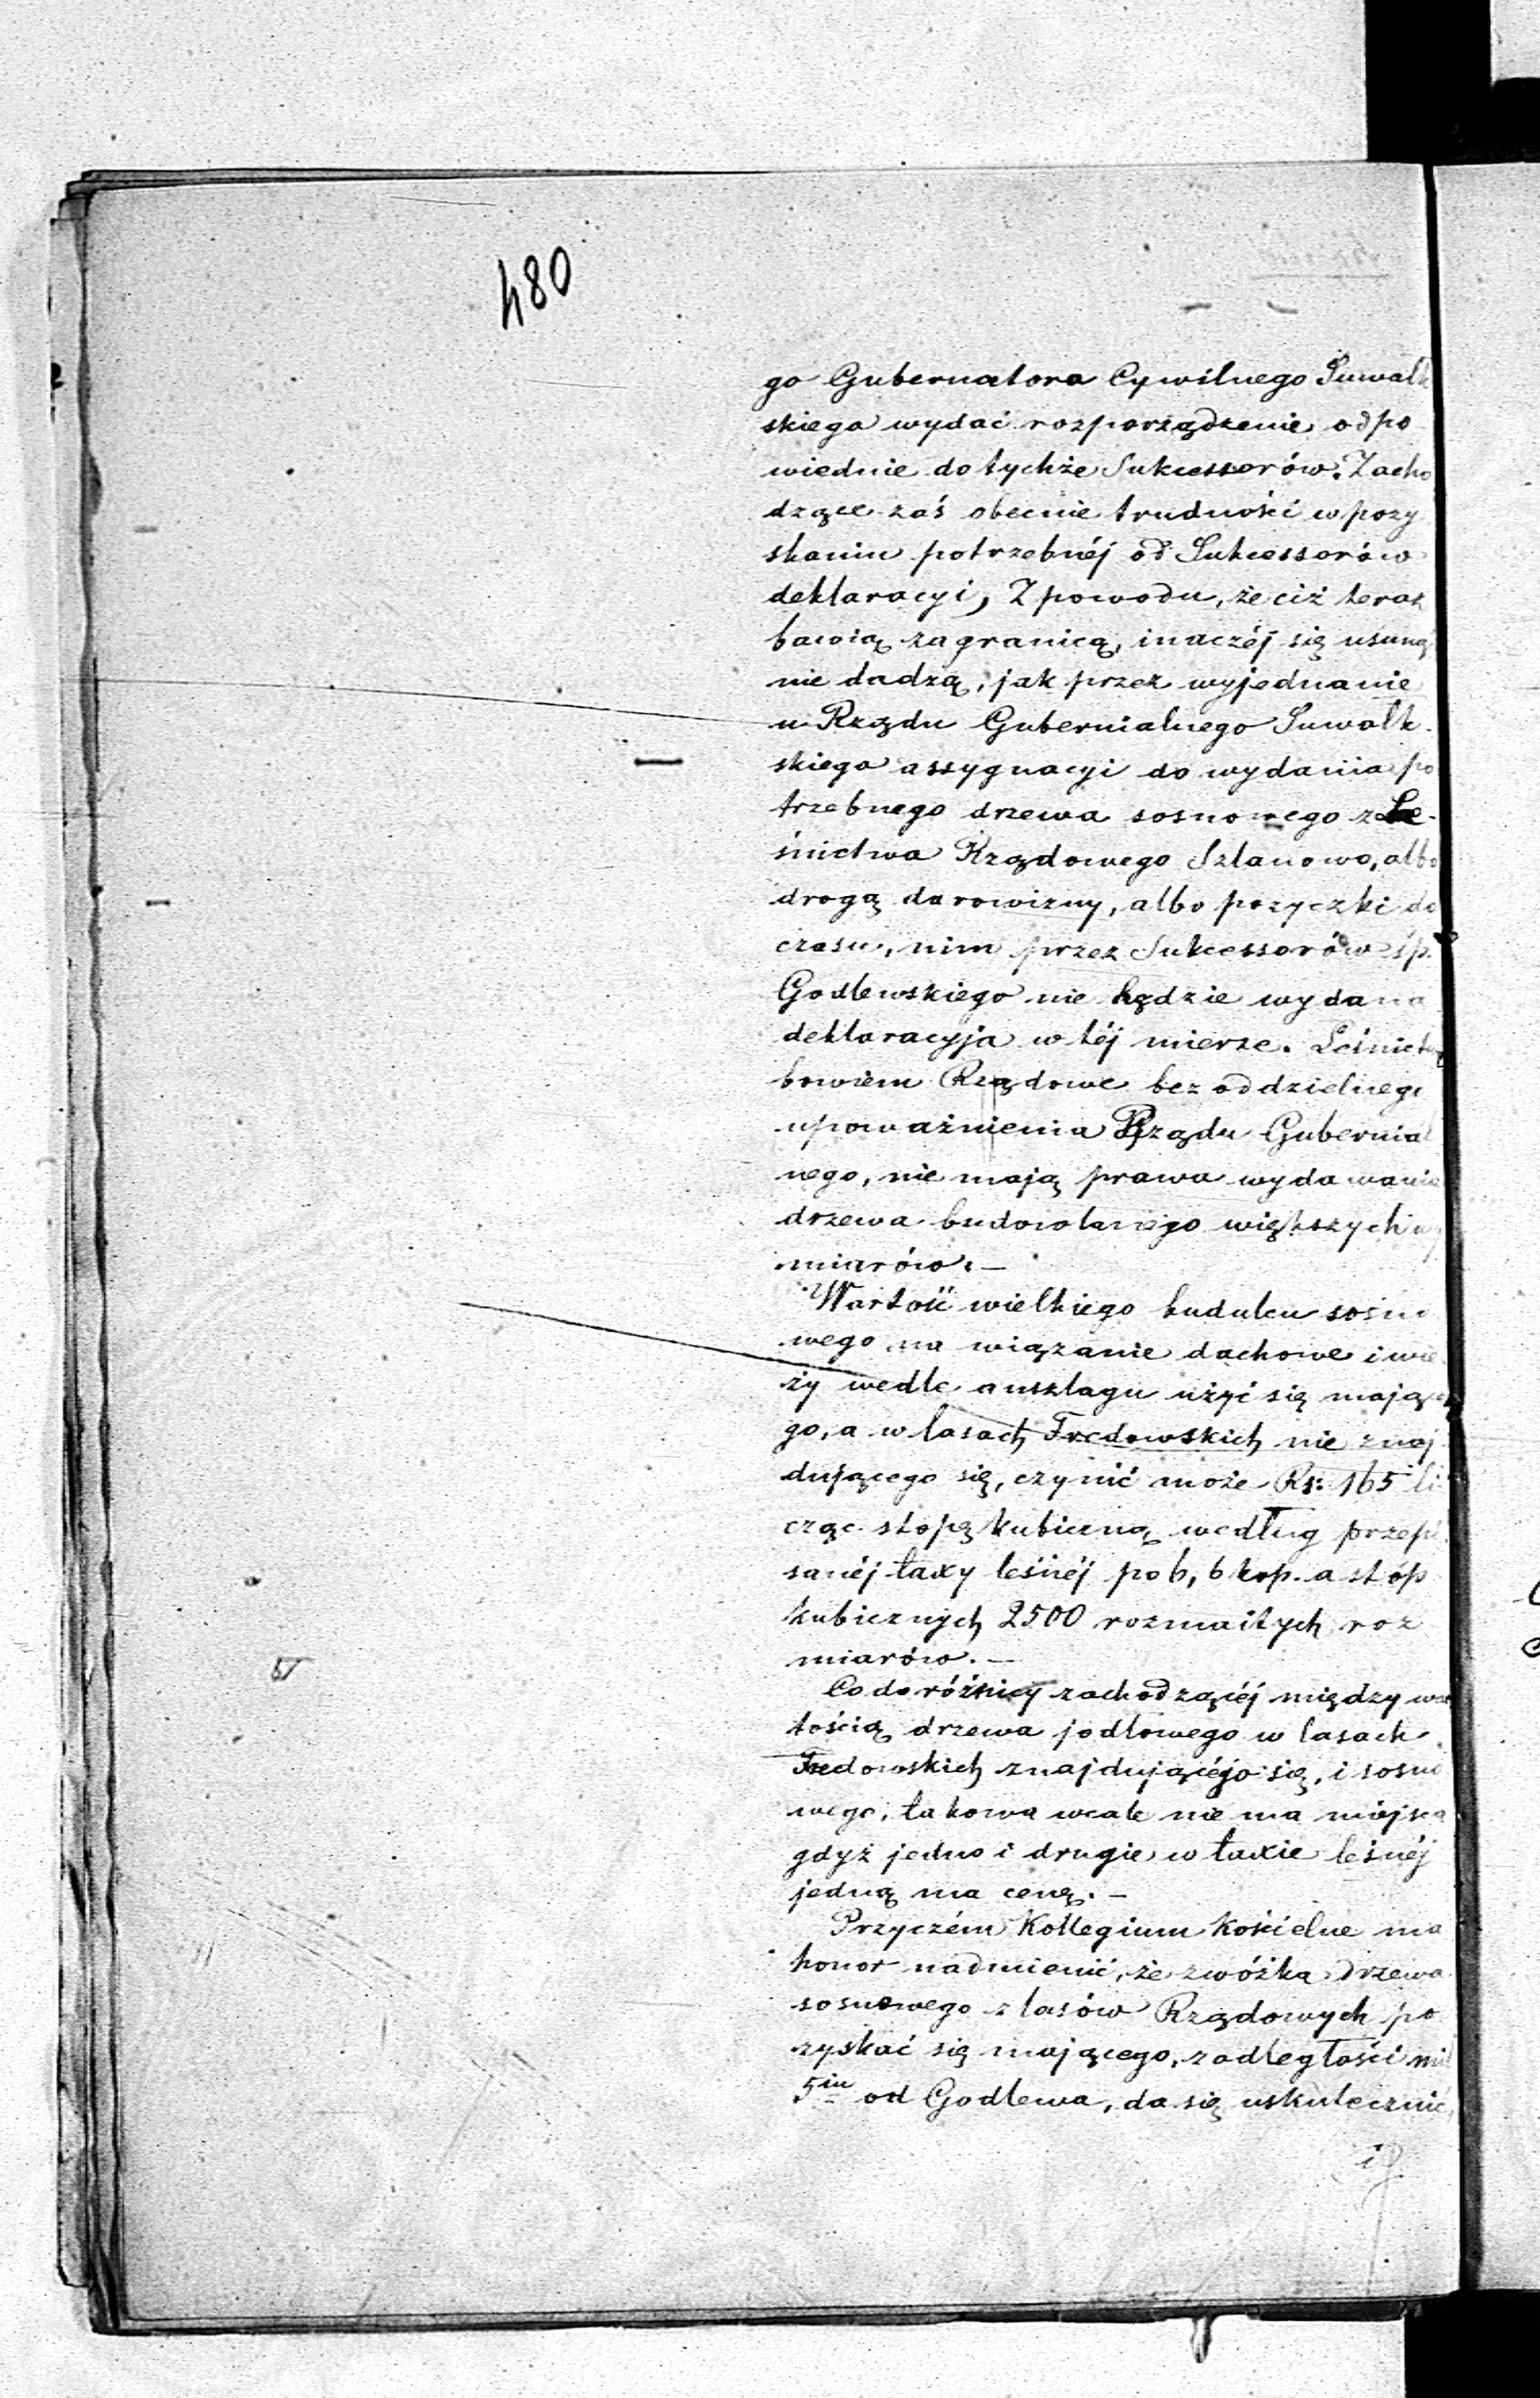 480
go Gubernatora Cywilnego Suwalk
skiego wydać rozporządzenie odpo
wiednie do tychże Sukcessorów. Zacho
dzące zaś obecnie trudności w pozy
skaniu potrzebnéj od Sukcessorów
deklaracyi, Z powodu, że ciż teraz
bawią zagranicą, inaczéj się usuną
nie dadzą, jak przez wyjednanie
u Rządu Gubernialnego Suwalk-
skiego assygnacyi do wydania po
trzebnego drzewa sosnowego z Le-
śnictwa Rządowego Sztanowo, albo
drogą darowizny, albo pożyczki do
czasu, nim przez Sukcessorów śp.
Godlewskiego nie będzie wydana
deklaracyja w téj mierze. Leśnictwa
bowiem Rządowe bez oddzielnego
upoważnienia Rządu Gubernial
nego, nie mają prawa wydawania
drzewa budowlanego większych wy
miarów.—
Wartość wielkiego budulcu sosno
wego na wiązanie dachowe i wie
ży wedle anszlagu użyć się mające
go, a w lasach Fredowskich nie znaj
dującego się, czynić może Rs: 165 li
cząc stopę kubiczną według przepi
sanéj taxy leśnéj po 6,6 kop. a stóp
kubicznych 2500 rozmaitych roz
miarów.—
Co do różnicy zachodzącéj między war
tością drzewa jodłowego w lasach
Fredowskich znajdującégo się, i sosno
wego, takowa wcale nie ma miejsca
gdyż jedno i drugie w taxie leśnéj
jedną ma cenę.—
Przyczém Kollegium Kościelne ma
honor nadmienić, że zwózka drzewa
sosnowego z lasów Rządowych po
zyskać się mającego, z odległości mil
5iu od Godlewa, da się uskutecznić,
i